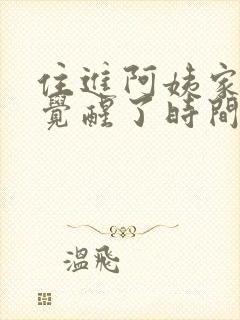 住進阿姨家
覺醒了時間
溫飛